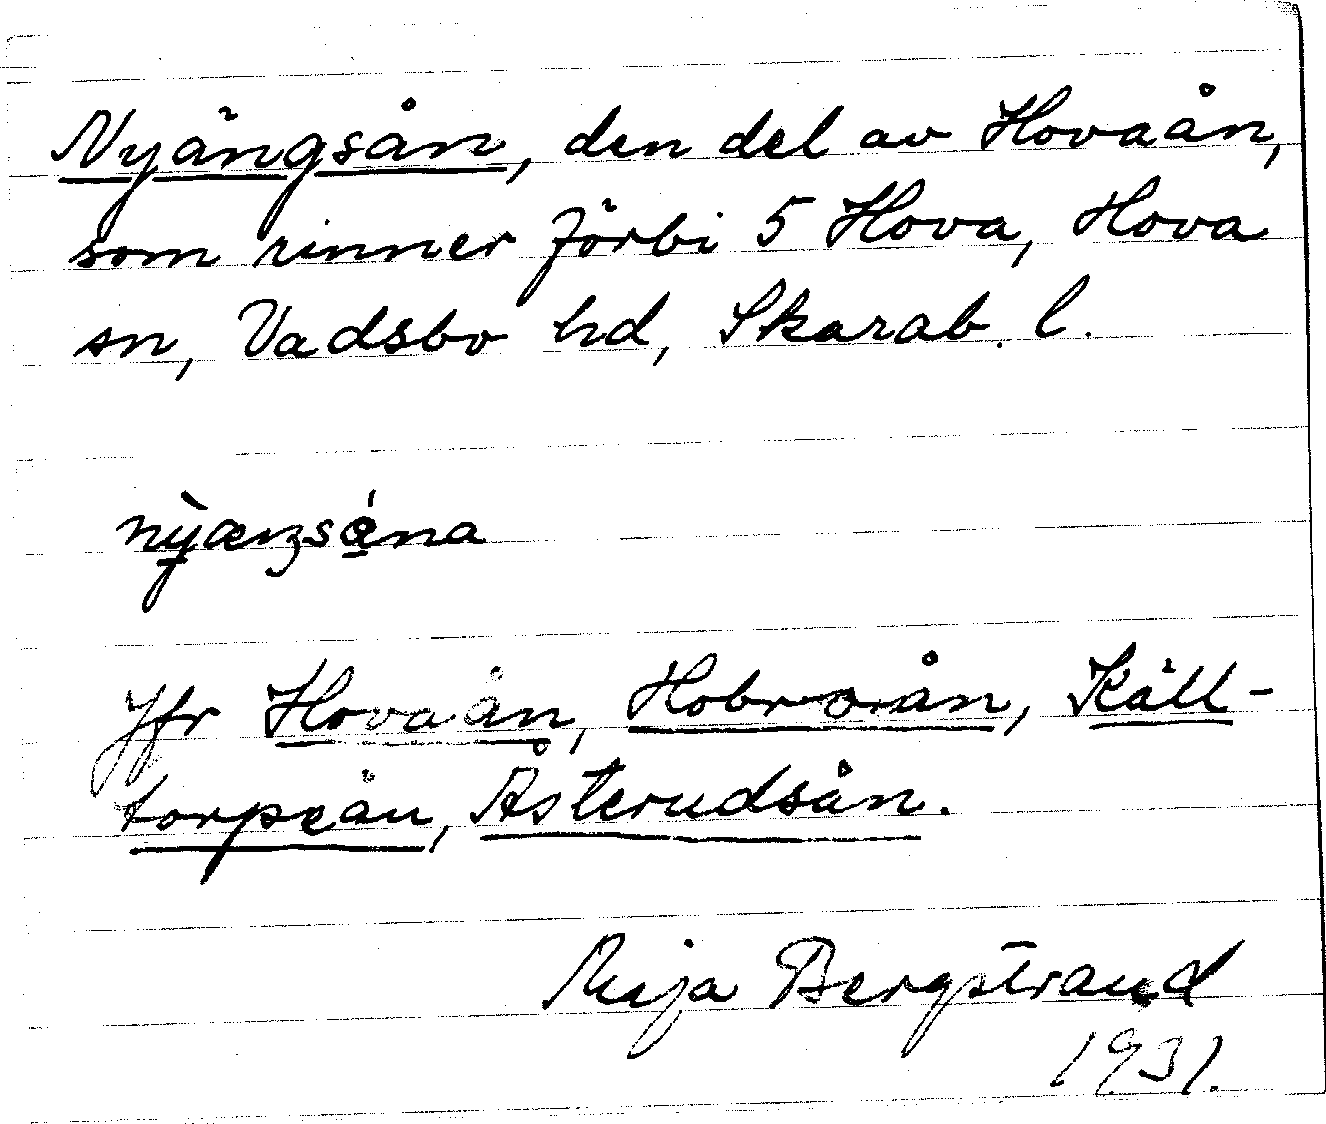 Nyängsån, den del av Hovaån,
som rinner förbi 5 Hova, Hova
sn, Vadsbo hd, Skarab. l.
Jfr Hovaån, Hobroån, Käll-
torpeån, Åsterudsån.
Maja Bergstrand
1931.